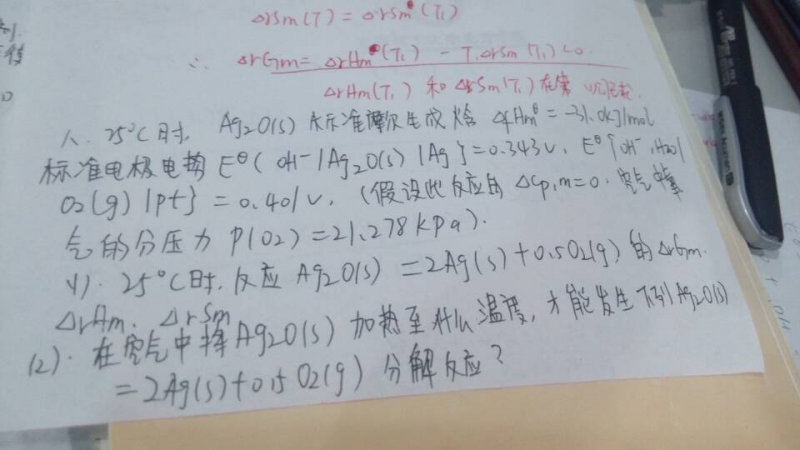 ΔrSm(T) = ΔrSm^θ(T₁)
∴ ΔrGm = ΔrHm^θ(T₁) - T₁ΔrSm(T₁) <0.
ΔrHm(T₁) 和 ΔrSm(T₁)
1、25℃时, Ag₂O(s) 标准摩尔生成焓 ΔfHm^θ = -31.0kJ/mol
标准电极电势 E^θ{OH⁻|Ag₂O(s)|Ag}=0.343V, E^θ{OH⁻,H₂O|
O₂(g)|Pt} = 0.401V. (假设此反应的 ΔCp,m=0. 空气中氧
气的分压力 P(O₂)=21.278kPa).
(1). 25℃时. 反应 Ag₂O(s) = 2Ag(s)+0.5O₂(g) 的 ΔrGm.
ΔrHm. ΔrSm
(2). 在空气中将Ag₂O(s) 加热至什么温度, 才能发生下列Ag₂O(s)
=2Ag(s)+0.5O₂(g) 分解反应?